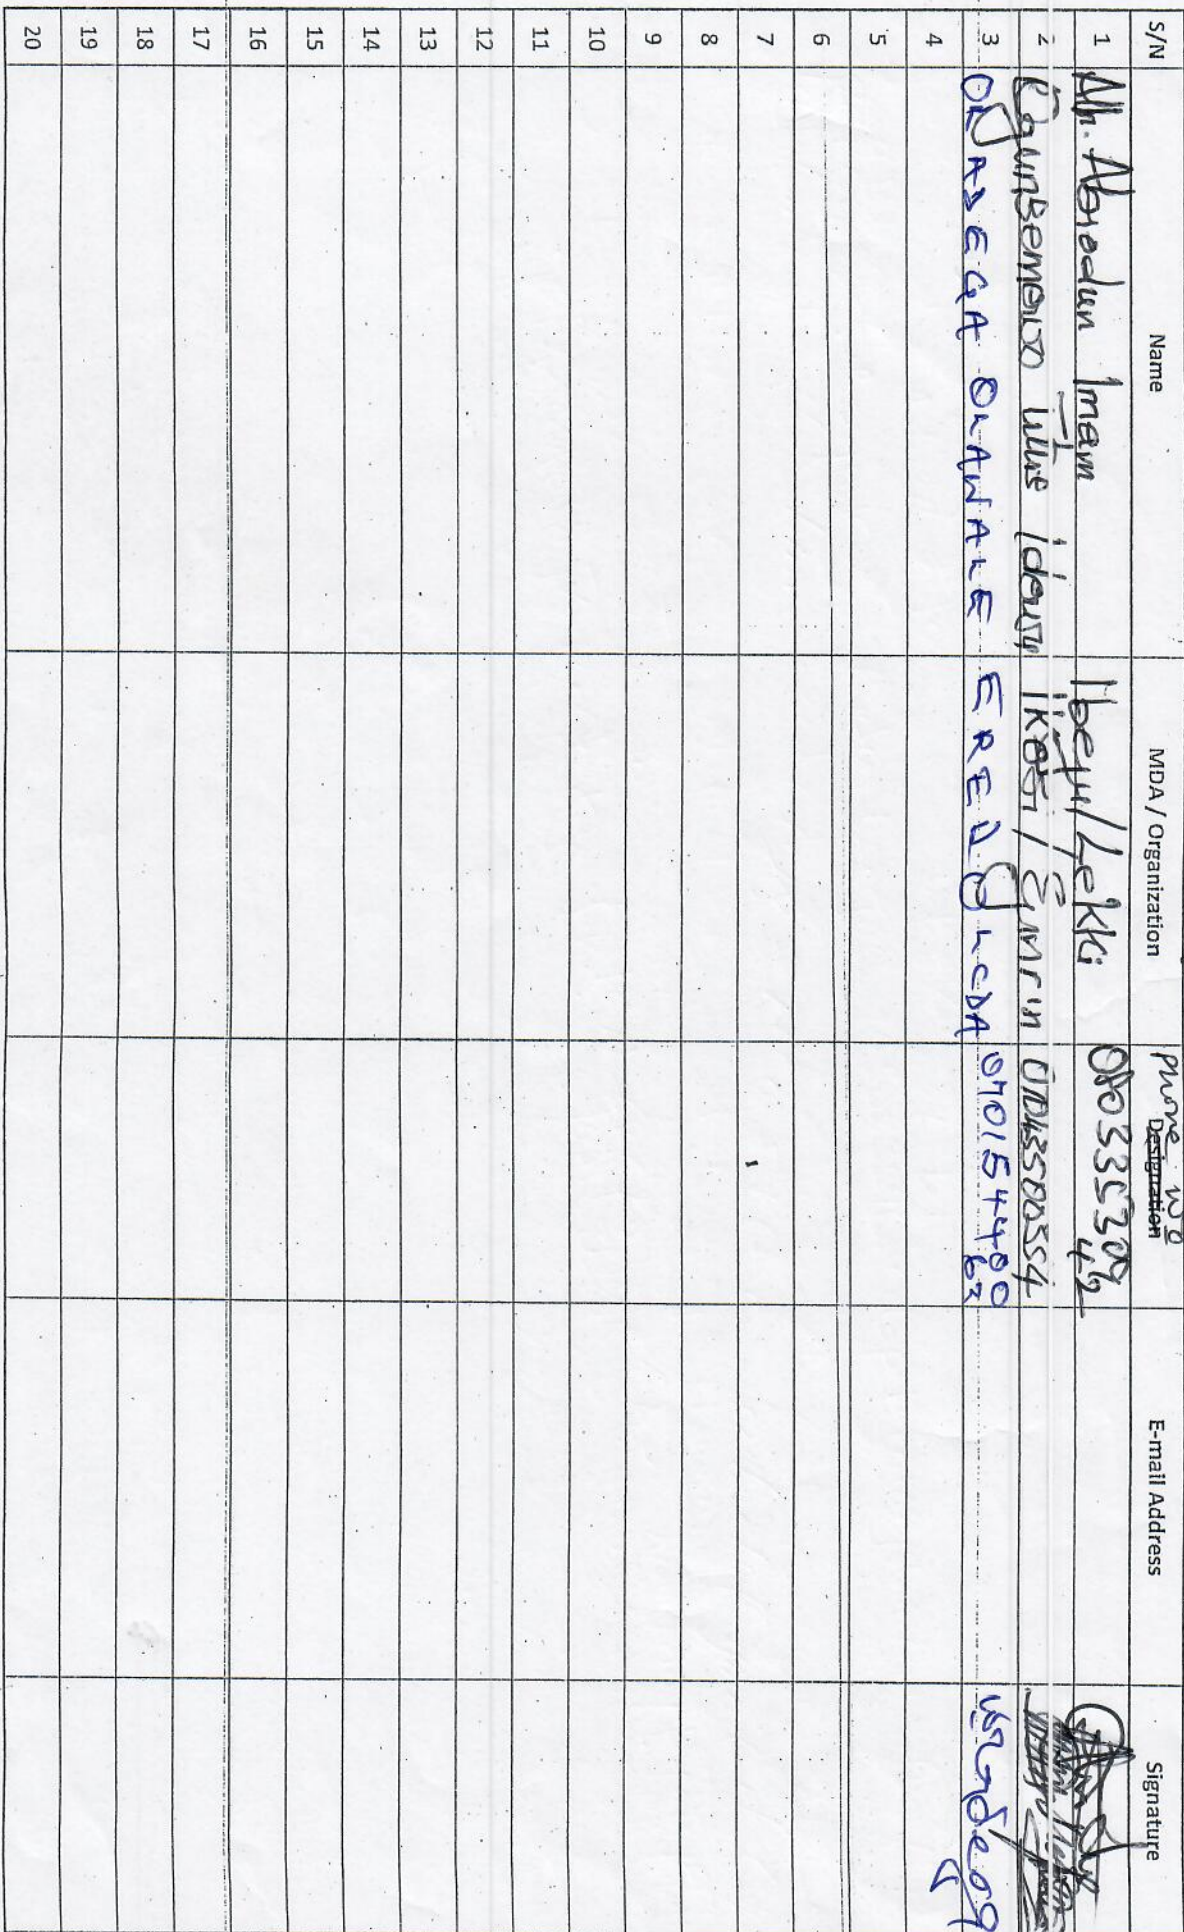 S/N Name MDA / Organization Phone No Designation E-mail Address Signature
1 Mr. Abiodun Imam Ibeju/Lekki 0803335309
42
2 Idowu Ikosi / Ejinrin
3 OLADEGA OLAWALE EREDO LCDA 0701544400
63
4
5
6
7
8
9
10
11
12
13
14
15
16
17
18
19
20